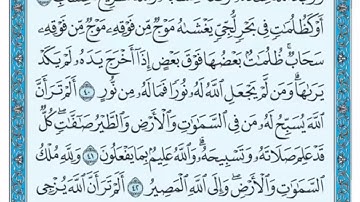 أَوْ كَظُلُمَٰتٍ فِى بَحْرٍ لُّجِّىٍّ يَغْشَىٰهُ مَوْجٌ مِّن فَوْقِهِۦ مَوْجٌ مِّن فَوْقِهِۦ
سَحَابٌ ظُلُمَٰتٌۢ بَعْضُهَا فَوْقَ بَعْضٍ إِذَآ أَخْرَجَ يَدَهُۥ لَمْ يَكَدْ
يَرَىٰهَا وَمَن لَّمْ يَجْعَلِ ٱللَّهُ لَهُۥ نُورًا فَمَا لَهُۥ مِن نُّورٍ ٤٠ أَلَمْ تَرَ أَنَّ
ٱللَّهَ يُسَبِّحُ لَهُۥ مَن فِى ٱلسَّمَٰوَٰتِ وَٱلْأَرْضِ وَٱلطَّيْرُ صَٰٓفَّٰتٍ كُلٌّ
قَدْ عَلِمَ صَلَاتَهُۥ وَتَسْبِيحَهُۥ وَٱللَّهُ عَلِيمٌۢ بِمَا يَفْعَلُونَ ٤١ وَلِلَّهِ مُلْكُ
ٱلسَّمَٰوَٰتِ وَٱلْأَرْضِ وَإِلَى ٱللَّهِ ٱلْمَصِيرُ ٤٢ أَلَمْ تَرَ أَنَّ ٱللَّهَ يُزْجِى